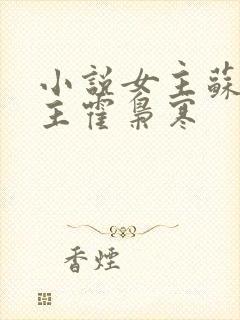 小說女主蘇
主霍梟寒
香煙